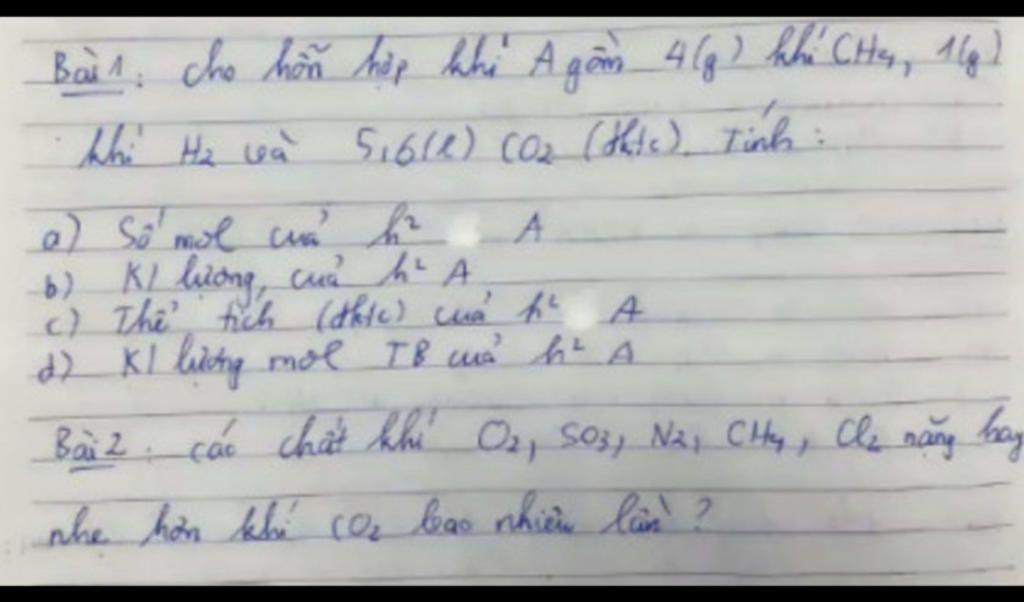 Bài 1: Cho hỗn hợp khí A gồm 4(g) khí CH4, 1(g)
khí H2 và 5,6(l) CO2 (đktc). Tính:
a) Số mol cuả h² A
b) Kl lượng cuả h² A
c) Thể tích (đktc) cuả h² A
d) Kl lượng mol TB cuả h² A
Bài 2: các chất khí O2, SO3, N2, CH4, Cl2 nặng hay
nhẹ hơn khí CO2 bao nhiêu lần?